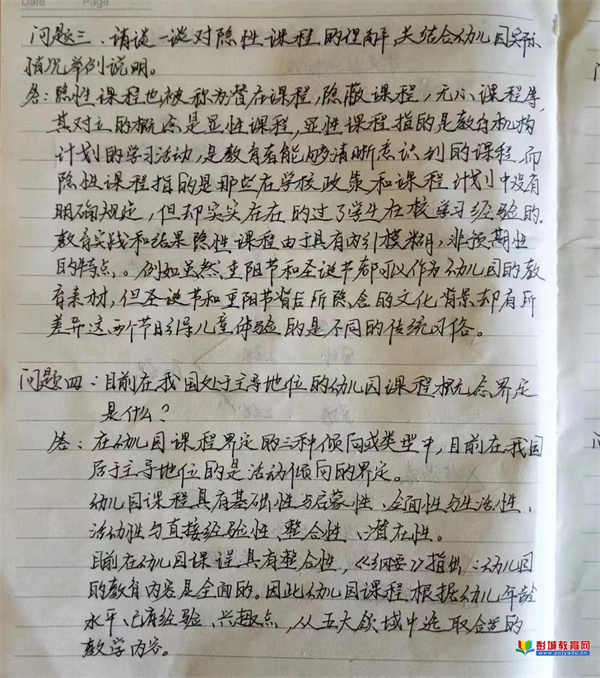 Date Page
问题三、请谈一谈对隐性课程的理解,关结合幼儿园实际
情况举例说明。
答:隐性课程也被称为潜在课程,隐蔽课程,无心课程等,
其对立的概念是显性课程,显性课程指的是教育机构
计划的学习活动,是教育者能够清晰意识到的课程,而
隐性课程指的是那些在学校政策和课程计划中没有
明确规定,但却实实在在的过了学生在校学习经验的
教育实践和结果隐性课程由于具有内引模糊,非预期性
的特点,。例如虽然重阳节和圣诞节都可以作为幼儿园的教
育素材,但圣诞节和重阳节背后所隐含的文化背景却有所
差异这两个节日引导儿童体验的是不同的传统习俗。
问题四:目前在我国处于主导地位的幼儿园课程概念界定
是什么?
答:在幼儿园课程界定的三种倾向或类型中,目前在我国
居于主导地位的是活动倾向的界定。
幼儿园课程具有基础性与启蒙性、全面性与生活性、
活动性与直接经验性、整合性、潜在性。
目前在幼儿园课程具有整合性,《纲要》指出:幼儿园
的教育内容是全面的。因此幼儿园课程根据幼儿年龄
水平、已有经验、兴趣点,从五大领域中选取合适的
教学内容。
彭城教育网
www.pcjyedu.cn